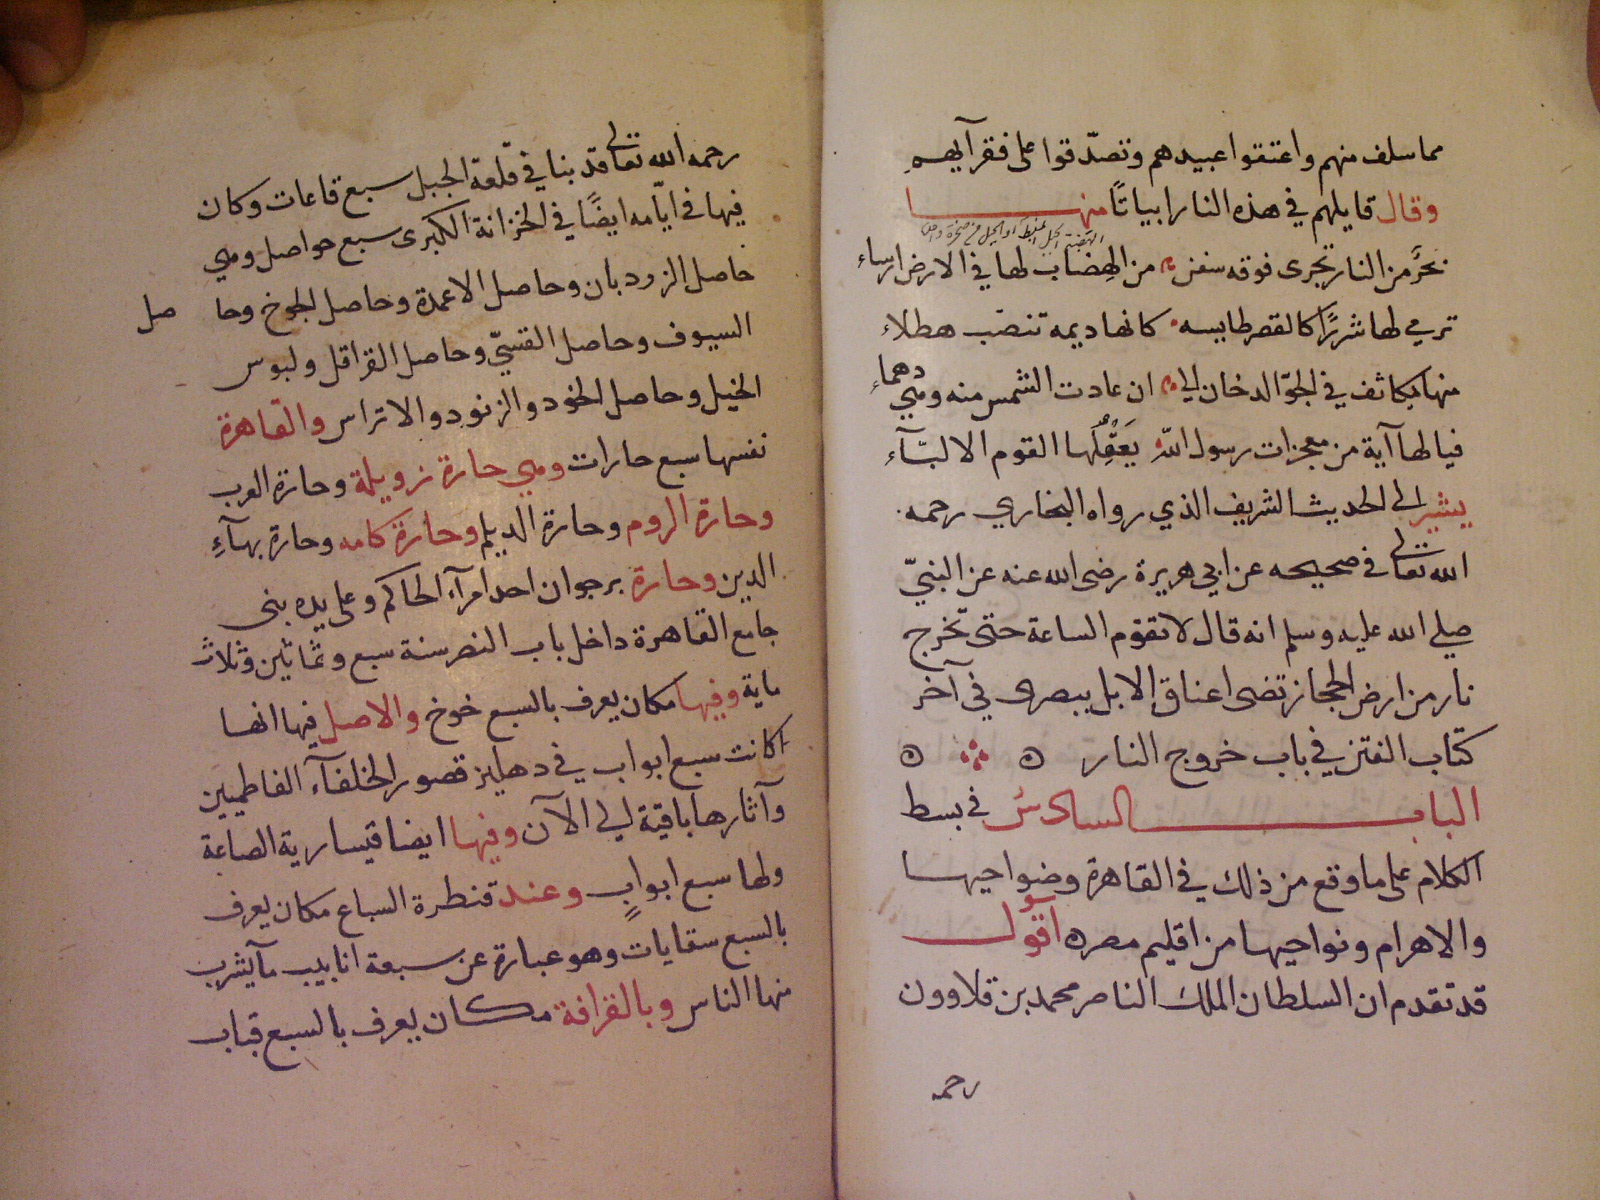 مما سلف منهم واعتقوا عبيدهم وتصدّقوا على فقرآيهم
وقال قايلهم في هذه النار ابياتًا منها
الهضبة الجبل المنبسط او الجبل من صخرة واحدة
بحرٌ من النار تجرى فوقه سفن من الهِضَاب لها في الارض ارساء
ترمي لها شررًا كالقصر طايسه كانها ديمه تنصّب هطلاء
منها تكاثف في الجوّ الدخان الي ان عادت الشمس منه وهي دهماء
فيا لها آية من معجزات رسول اللّه يَعْقِلُها القوم الالبّاء
يشير الى الحديث الشريف الذي رواه البخاري رحمه
الله تعالى في صحيحه عن ابي هريرة رضى الله عنه عن النبيّ
صلي الله عليه وسلم انه قال لا تقوم الساعة حتى تخرج
نار من ارض الحجاز تضى اعناق الابل ببصرى في آخر
كتاب الفتن في باب خروج النار ه ه
الباب السادس في بسط
الكلام على ما وقع من ذلك في القاهرة وضواحيها
والاهرام ونواحيها من اقليم مصره اقول
قد تقدم ان السلطان الملك الناصر محمد بن قلاوون
رحمه
رحمه الله تعالى قد بنا في قلعة الجبل سبع قاعات وكان
فيها في ايّامه ايضًا في الخزانة الكبرى سبع حواصل وهي
حاصل الزردبان وحاصل الاعمدة وحاصل الجوخ وحا صل
السيوف وحاصل القسيّ وحاصل القراقل ولبوس
الخيل وحاصل الخود والزنود والاتراس والقاهرة
نفسها سبع حارات وهي حارة زويلة وحارة العرب
وحارة الروم وحارة الديلم وحارة كامه وحارة بهآءِ
الدين وحارة برجوان احد امرآء الحاكم وعلى يده بنى
جامع القاهرة داخل باب النصر سنة سبع وثمانين وثلاث
ماية وفيها مكان يعرف بالسبع خوخ والاصل فيها انها
كانت سبع ابواب في دهليز قصور الخلفآء الفاطميين
وآثارها باقية الى الآن وفيها ايضا قيسارية الصاعة
ولها سبع ابوابٍ وعند قنطرة السباع مكان يعرف
بالسبع سقايات وهو عبارة عن سبعة انابيب مآ يشرب
منها الناس وبالقرافة مكان يعرف بالسبع قباب